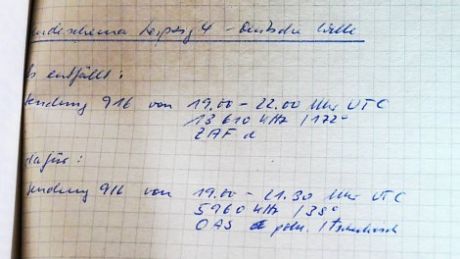 endeschema Leipzig 4 - Deutsche Welle
s entfällt:
endung 916 von 19.00 - 22.00 Uhr UTC
13 610 kHz / 172°
ZAF d
dafür:
endung 916 von 19.00 - 21.30 Uhr UTC
5960 kHz / 38°
OAS poln. / Tschechisch